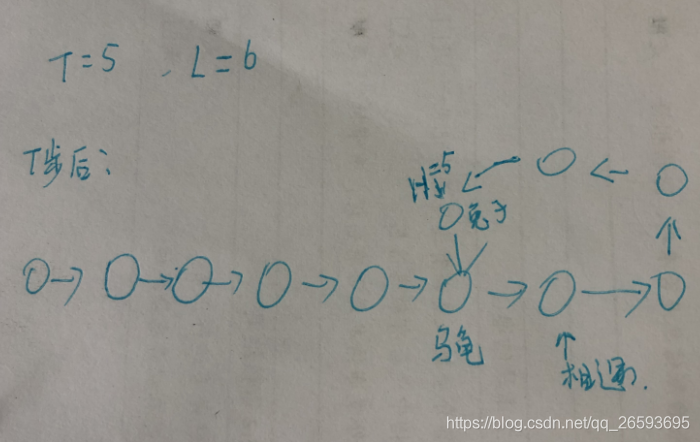 T=5 , L=6
T步后:
=5
兔子
乌龟
相遇.
https://blog.csdn.net/qq_26593695